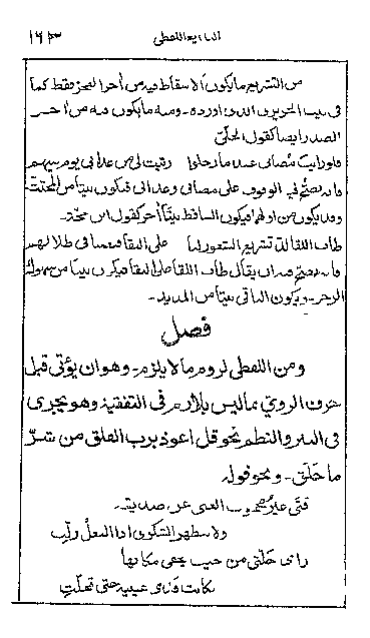 البديع اللفظي ١٦٣
من التشريع ما يكون الاسقاط فيه من أحرالعجز فقط كما
في بيت الحريري الذي أورده - ومنه ما يكون فيه من آخر
الصدر ايضا كقول الحلّي
فلو رأيت مصابي عندما رحلوا رثيت لي من عذابي يوم بينهم
فانه يصح فيه الوقوف على مصابي وعذابي فيكون بيتا من المجتث
وقد يكون من أولهما فيكون الساقط بيتا آخر كقول ابن حجة
طاب اللقا لذ تشريع الشعور لنا على النقا فنعمنا في ظلالهم
فانه يصح فيه ان يقال طاب اللقا على النقا فيكون بيتا من منهوك
الرجز - ويكون الباقي بيتا من المديد -
فصل
ومن اللفظي لزوم ما لا يلزم - وهو ان يؤتى قبل
حرف الرويّ بما ليس بلازم في التقفية وهو يجري
في النثر والنظم نحو قل اعوذ برب الفلق من شرّ
ما خلق - ونحو قوله
فتى غير محجوب الغنى عن صديقه
ولا مظهر الشكوى اذا النعل زلّت
رأى خلّتي من حيث يخفى مكانها
فكانت قذى عينيه حتى تجلّت